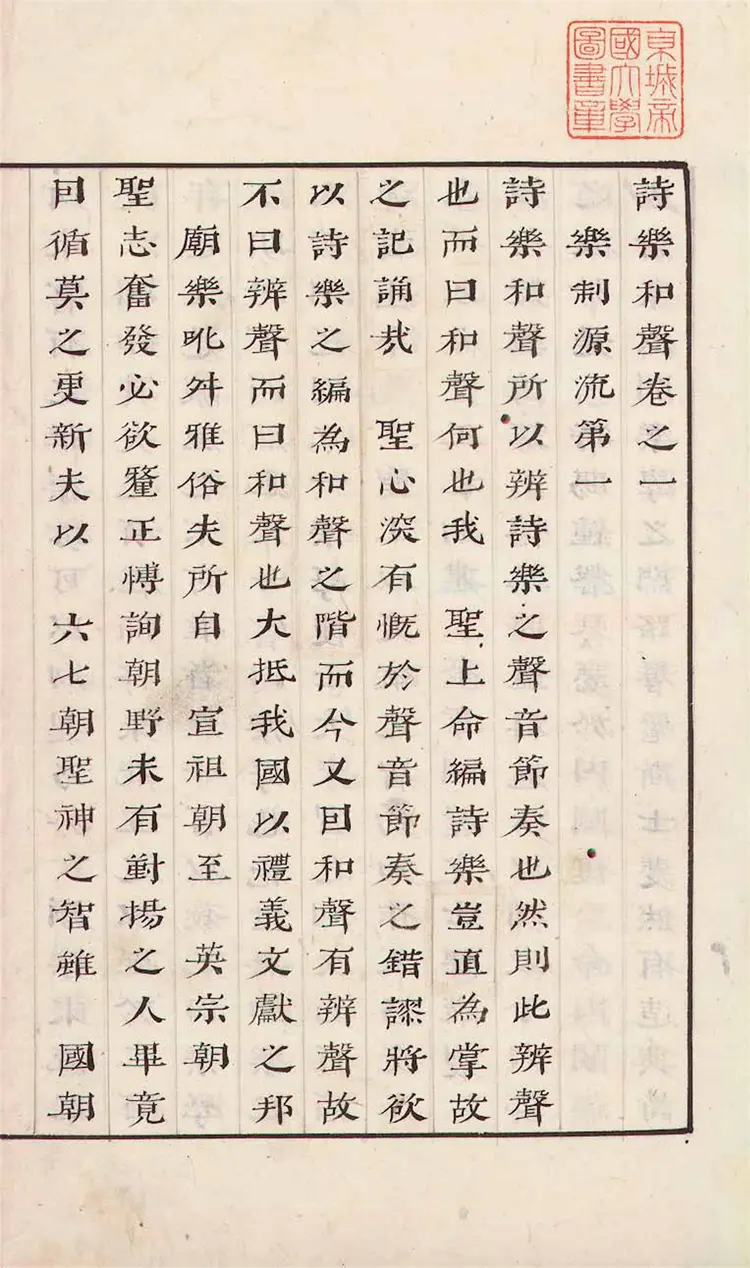 京城帝
國大學
圖書章
詩樂和聲卷之一
樂制源流第一
詩樂和聲所以辨詩樂之聲音節奏也然則此辨聲
也而曰和聲何也我 聖上命編詩樂豈直為掌故
之記誦哉 聖心深有慨於聲音節奏之錯謬將欲
以詩樂之編為和聲之階而今又曰和聲有辨聲故
不曰辨聲而曰和聲也大抵我國以禮義文獻之邦
廟樂吪舛雅俗夫所自 宣祖朝至 英宗朝
聖志奮發必欲釐正愽詢朝野未有對揚之人畢竟
因循莫之更新夫以 六七朝聖神之智雖 國朝